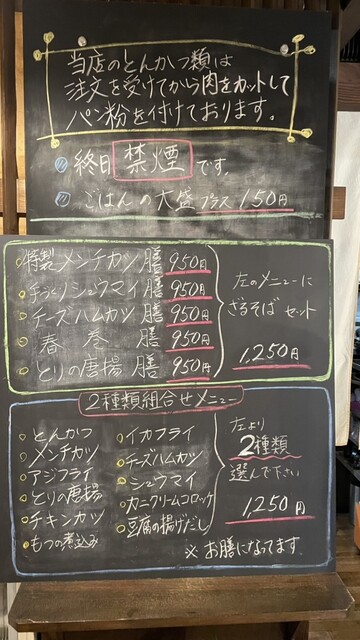 当店のとんかつ類は
注文を受けてから肉をカットして
パン粉を付けております。
終日 禁煙です。
ごはんの大盛プラス150円
特製メンチカツ膳 950円
手づくりシュウマイ膳 950円
チーズハムカツ膳 950円
春巻膳 950円
とりの唐揚膳 950円
左のメニューに
ざるそばセット
1,250円
2種類組合せメニュー
とんかつ
メンチカツ
アジフライ
とりの唐揚
チキンカツ
もつの煮込み
イカフライ
チーズハムカツ
シュウマイ
カニクリームコロッケ
豆腐の揚げだし
左より
2種類
選んで下さい
1,250円
※お膳になってます